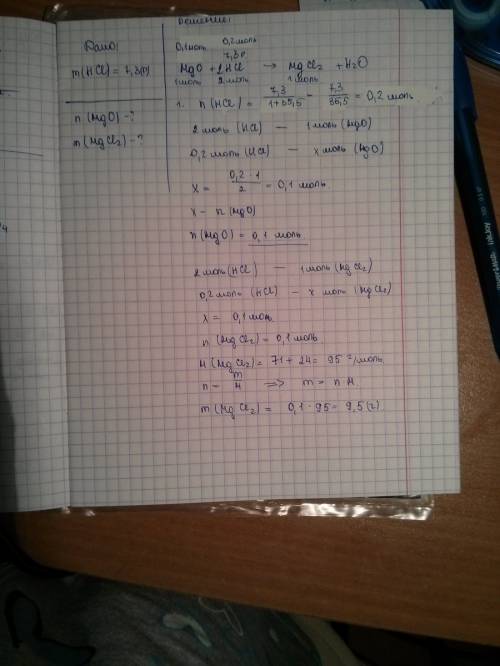 Решение:
Дано:
m(HCl) = 7,3(г)
n(MgO) - ?
m(MgCl2) - ?
0,1моль 0,2моль
7,3г
MgO + 2HCl → MgCl2 + H2O
1моль 2моль 1моль
1. n(HCl) = 7,3 / 1+35,5 = 7,3 / 36,5 = 0,2 моль
2 моль (HCl) — 1моль (MgO)
0,2 моль (HCl) — x моль (MgO)
x = 0,2·1 / 2 = 0,1 моль
x - n (MgO)
n(MgO) = 0,1 моль
2 моль (HCl) — 1 моль (MgCl2)
0,2 моль (HCl) — x моль (MgCl2)
x = 0,1 моль
n(MgCl2) = 0,1 моль
M(MgCl2) = 71 + 24 = 95 г/моль
n = m / M => m = n·M.
m(MgCl2) = 0,1·95 = 9,5(г)